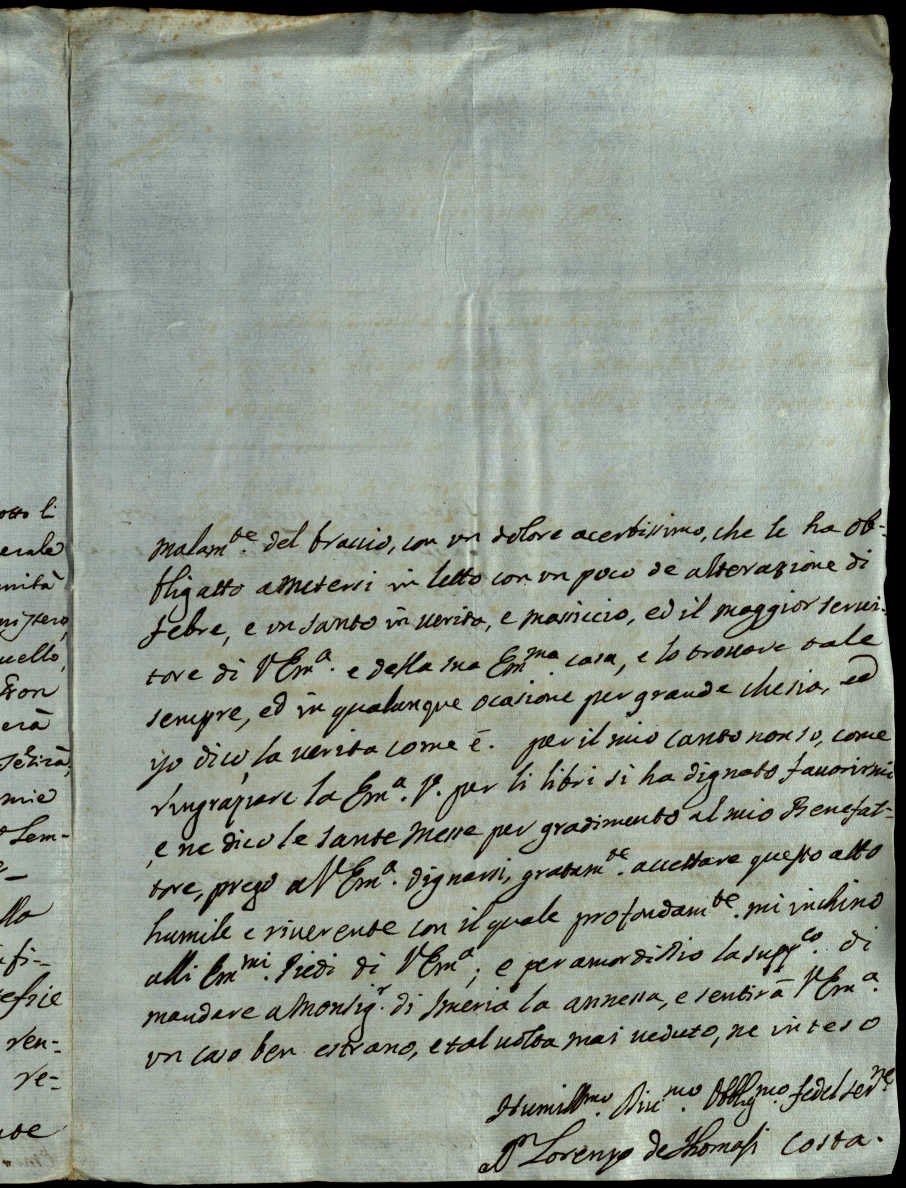 otto li
erale
nità
nistero,
uello,
Fron
erà
mie
Sem-
lla
ifi-
efizie
ren-
re-
malam.te del braccio, con un dolore acerbissimo, che le ha ob-
bligatto a metersi in letto con un poco de alterazione di
febre, e un santo in verità, e massiccio, ed il maggior servi-
tore di V Em.a e della sua Em.ma casa, e lo trovare tale
sempre, ed in qualunque ocasione per grande che sia, ed
yo dico la verita come è. per il mio canto non so, come
ringraziare la Em.a V. per li libri si ha dignato favorirmi
, e ne dico le sante Messe per gradimento al mio Benefat-
tore, prego a V Em.a dignarsi, gratam.te accettare questo atto
humile e riverente con il quale profondam.te mi inchino
alli Em.mi Piedi di V Em.a; e per amor di Dio la supp.co di
mandare a Monsig.r di Smeria la annessa, e sentirà V Em.a
un caso ben estrano, e tal volta mai veduto, ne inteso
Humill.mo Div.mo Obblig.mo fedel ser.re
Lorenzo de Thomasi Costa.